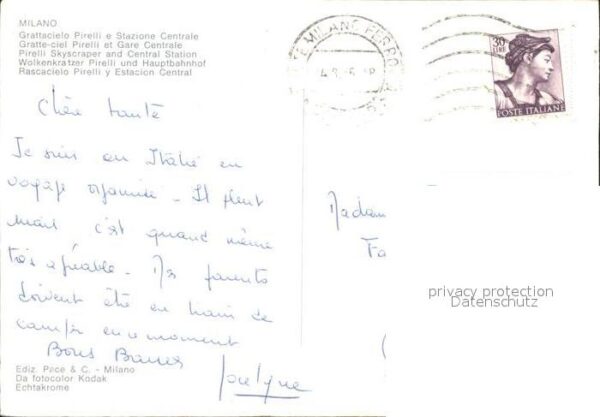 MILANO
Grattacielo Pirelli e Stazione Centrale
Gratte-ciel Pirelli et Gare Centrale
Pirelli Skyscraper and Central Station
Wolkenkratzer Pirelli und Hauptbahnhof
Rascacielo Pirelli y Estacion Central
MILANO FERROVIA
30
LIRE
POSTE ITALIANE
Chère tante
Je suis en Italie en
voyage organisé - Il pleut
mais c'est quand même
très agréable. Mes parents
doivent être en train de
camper en ce moment
Bons Baisers
Joelyne
Madam
Fa
privacy protection
Datenschutz
Ediz. Pace & C. - Milano
Da fotocolor Kodak
Echtakrome